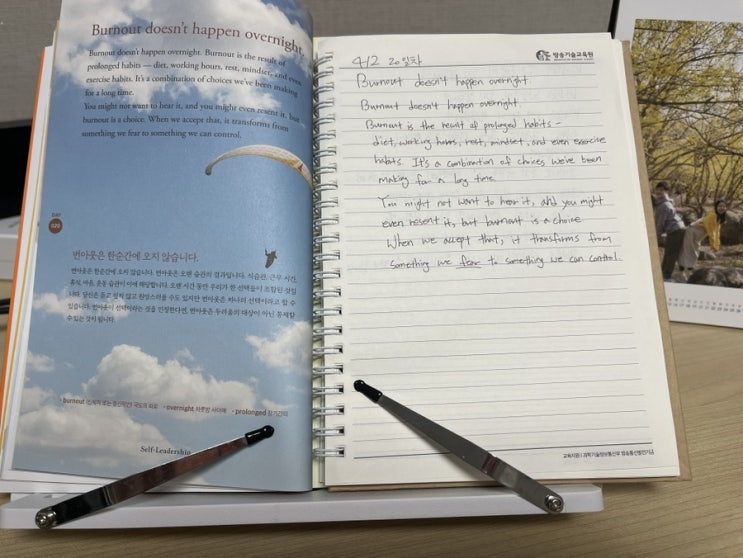 Burnout doesn't happen overnight.
Burnout doesn't happen overnight. Burnout is the result of
prolonged habits — diet, working hours, rest, mindset, and even
exercise habits. It's a combination of choices we've been making
for a long time.
You might not want to hear it, and you might even resent it, but
burnout is a choice. When we accept that, it transforms from
something we fear to something we can control.
DAY
020
번아웃은 한순간에 오지 않습니다.
번아웃은 한순간에 오지 않습니다. 번아웃은 오랜 습관의 결과입니다. 식습관, 근무 시간,
휴식, 마음, 운동 습관이 이에 해당합니다. 오랜 시간 동안 우리가 한 선택들이 조합된 것입
니다. 당신은 듣고 싶지 않고 원망스러울 수도 있지만 번아웃은 하나의 선택이라고 할 수
있습니다. 번아웃이 선택이라는 것을 인정한다면, 번아웃은 두려움의 대상이 아닌 통제할
수 있는 것이 됩니다.
• burnout (신체적 또는 정신적인) 극도의 피로 • overnight 하룻밤 사이에 • prolonged 장기간의
Self-Leadership
방송기술교육원
4/2 20일차
Burnout doesn't happen overnight.
Burnout doesn't happen overnight.
Burnout is the result of prolonged habits –
diet, working hours, rest, mindset, and even exercise
habits. It's a combination of choices we've been
making for a long time
You might not want to hear it, and you might
even resent it, but burnout is a choice
When we accept that, it transforms from
something we fear to something we can control.
교육지원 | 과학기술정보통신부 방송통신발전기금